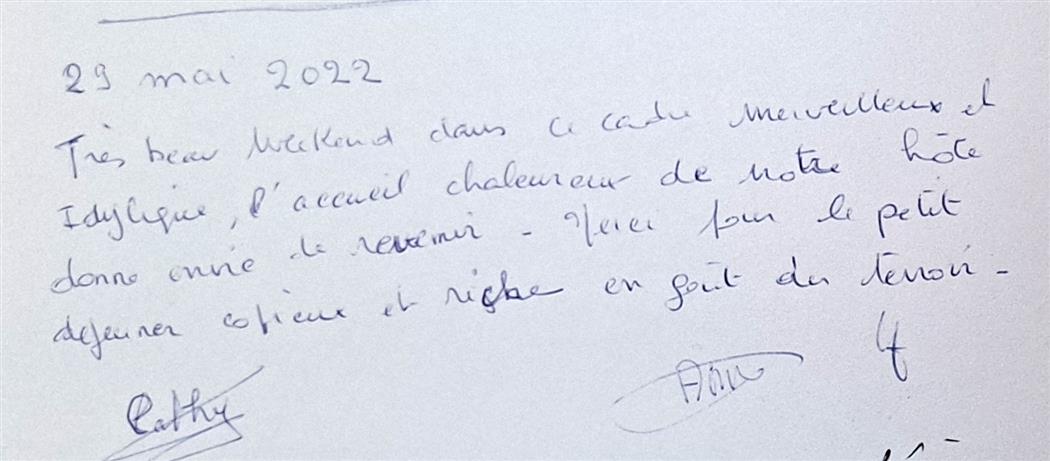 29 mai 2022
Très beau Weekend dans ce cadre merveilleux et
Idyligique, l'accueil chaleureux de notre hôte
donne envie de revenir - Merci pour le petit
dejeuner copieux et riche en goût du terroir -
Cathy